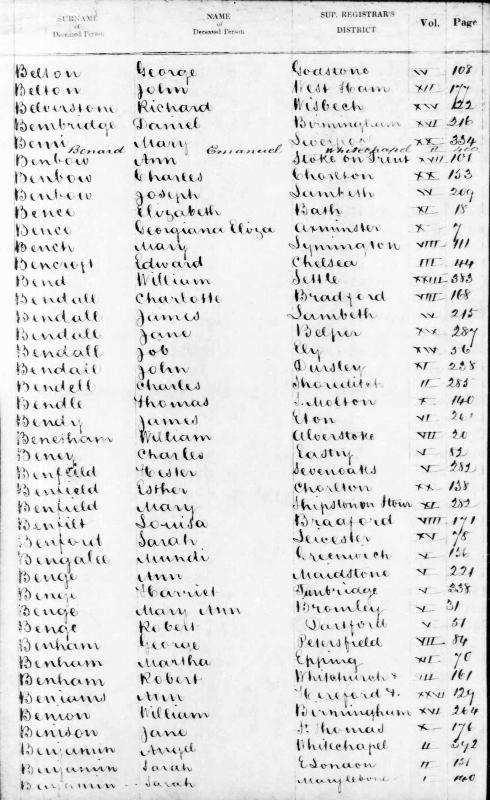 SURNAME of Deceased Person NAME of Deceased Person SUP. REGISTRAR'S DISTRICT Vol. Page
Belton George Godstone IV 108
Belton John West Ham XII 177
Belverstone Richard Wisbech XIV 22
Bembridge Daniel Birmingham XVI 216
Bemi Mary Liverpool XX 334
Benard Emanuel Whitechapel II
Benbow Ann Stoke on Trent XVII 101
Benbow Charles Chorlton XX 153
Benbow Joseph Lambeth IV 209
Bence Elizabeth Bath XI 18
Bence Georgiana Eliza Axminster X 7
Bench Mary Lymington VIII 111
Bencroft Edward Chelsea III 44
Bend William Settle XXIII 383
Bendall Charlotte Bradford VIII 168
Bendall James Lambeth IV 215
Bendall Jane Belper XIX 287
Bendall Job Ely XIV 56
Bendall John Dursley XI 238
Bendell Charles Shoreditch II 285
Bendle Thomas S. Molton X 140
Bendy James Eton VI 261
Benetham William Alverstoke VII 20
Beney Charles Eastry V 82
Benfield Hester Sevenoaks V 282
Benfield Esther Chorlton XX 138
Benfield Mary Shipston on Stour XI 282
Benfilt Louisa Bradford VIII 171
Benford Sarah XV 78
Bengalee Mundi Greenwich V 136
Benge Ann Maidstone V 221
Benge Harriet Tunbridge V 338
Benge Mary Ann Bromley V 31
Benge Robert Dartford V 51
Benham George Petersfield VII 84
Benham Martha Epping XII 70
Benham Robert Whitchurch & III 161
Benjams Ann Hereford &. XXVI 129
Benion William Birmingham XVI 264
Benison Jane St Thomas X 176
Benjamin Angel Whitechapel II 392
Benjamin Sarah E London II 131
Benjamin Sarah Marylebone I 140